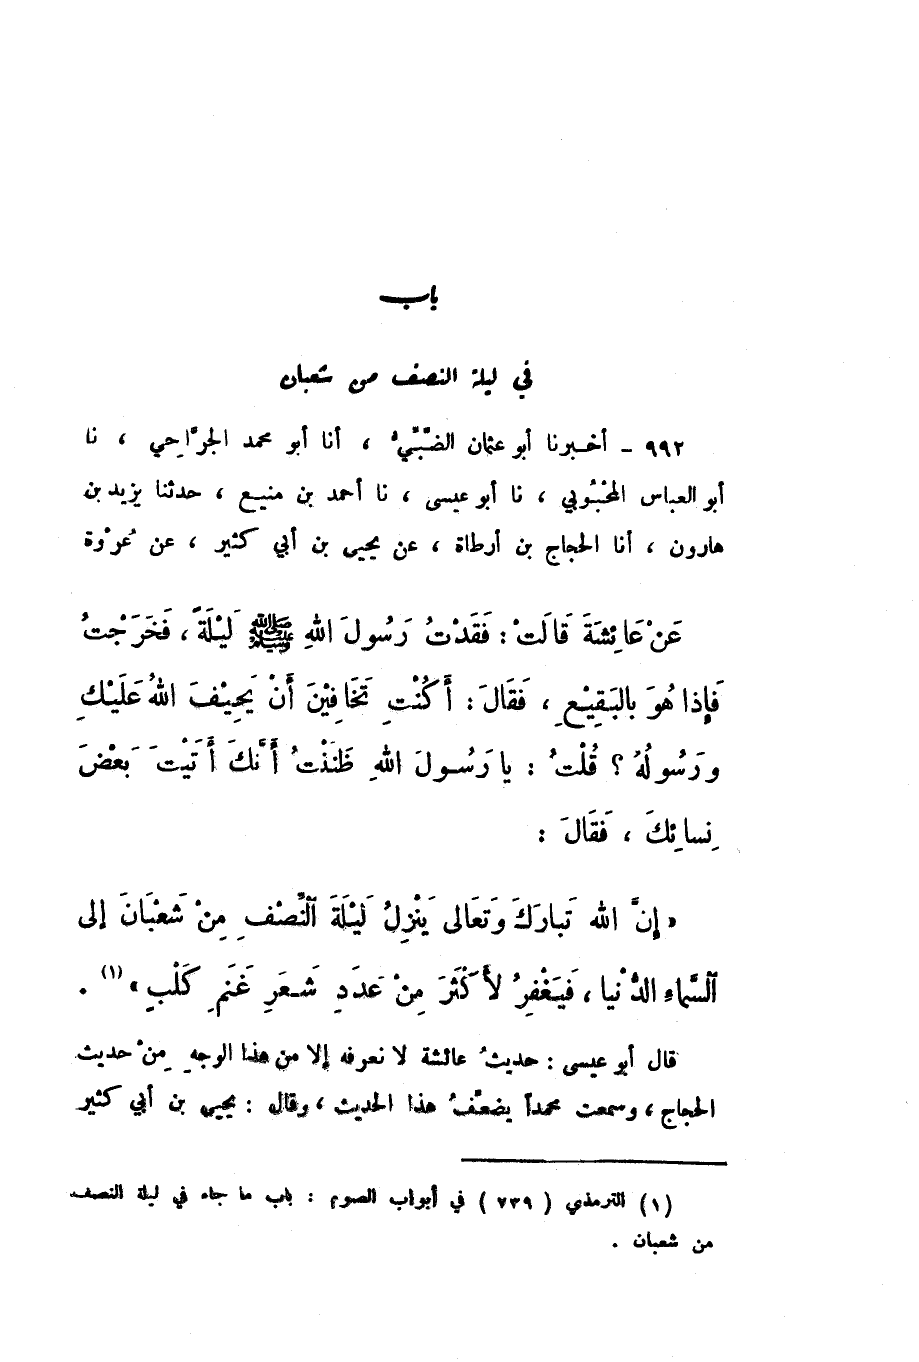 باب
في ليلة النصف من شعبان
٩٩٢ - أخبرنا أبو عثمان الضَّبِّيُّ ، أنا أبو محمد الجرَّاحي ، نا
أبو العباس المحْبُوبي ، نا أبو عيسى ، نا أحمد بن منيع ، حدثنا يزيد بن
هارون ، أنا الحجاج بن أرطاة ، عن يحيى بن أبي كثير ، عن عُروْة
عَنْ عَائِشَةَ قَالَتْ : فَقَدْتُ رَسُولَ اللهِ ﷺ لَيْلَةً ، فَخَرَجْتُ
فَإِذا هُوَ بالبَقِيْعِ ، فَقَالَ : أَكُنْتِ تَخَافِيْنَ أَنْ يَحِيْفَ اللهُ عَلَيْكِ
ورَسُولُهُ ؟ قُلْتُ : يا رَسُولَ اللهِ ظَنَنْتُ أَنَّكَ أَتَيْتَ بَعْضَ
نِسائِكَ ، فَقَالَ :
« إِنَّ الله تَبارَكَ وَتَعَالى يَنْزِلُ لَيْلَةَ ٱلنِّصْفِ مِنْ شَعْبَانَ إلى
ٱلسَّماءِ الدُّنْيا ، فَيَغْفِرُ لأَكْثَرَ مِنْ عَدَدِ شَعَرِ غَنَمِ كَلْبٍ » (١) .
قال أبو عيسى : حديثُ عائشة لا نعرفه إلا من هذا الوجهِ مِنْ حديث
الحجاج ، وسمعت محمداً يضعِّفُ هذا الحديث ، وقال : يحيى بن أبي كثير
(١) الترمذي ( ٧٣٩ ) في أبواب الصوم : باب ما جاء في ليلة النصف
من شعبان .